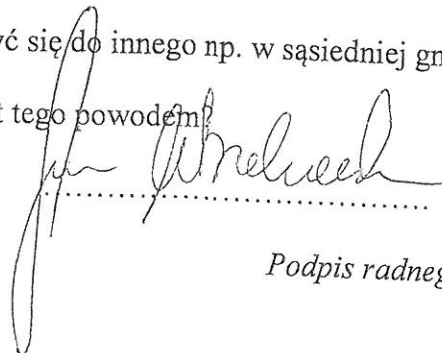 yć się do innego np. w sąsiedniej gm
t tego powodem?
........................................
Podpis radneg